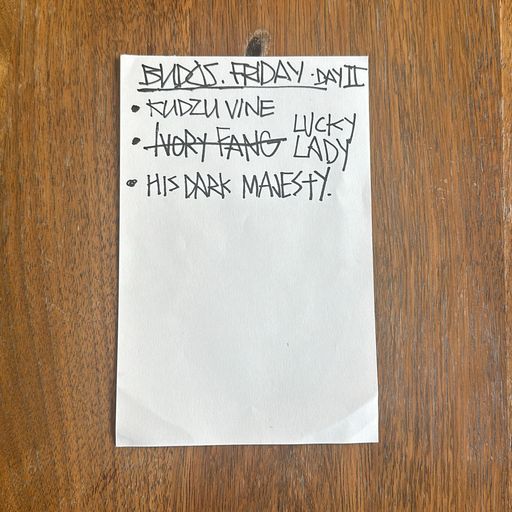 BUDOS. FRIDAY. DAY II
• KUDZU VINE
• IVORY FANG LUCKY LADY
• HIS DARK MAJESTY.